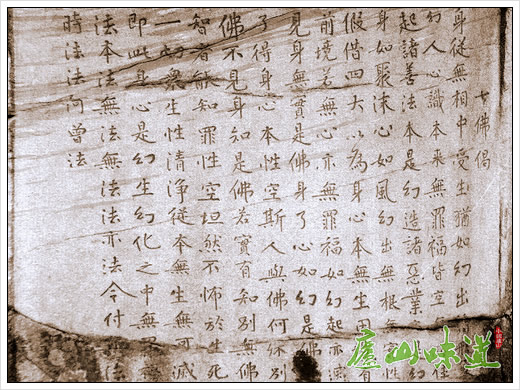 七佛偈
身從無相中受生猶如幻出
幻人心識本來無罪福皆空
起諸善法本是幻造諸惡業
身如聚沫心如風幻出無根實性
假借四大以為身心本無生因
前境若無心亦無罪福如幻起亦滅
見身無實是佛身了心如幻是佛
了得身心本性空斯人與佛何殊別
佛不見身知是佛若實有知別無佛
智者能知罪性空坦然不怖於生死
一切衆生性清淨從本無生無可滅
即此身心是幻生幻化之中無罪
法本法無法無法法亦法今付
時法法何曾法
廬山味道